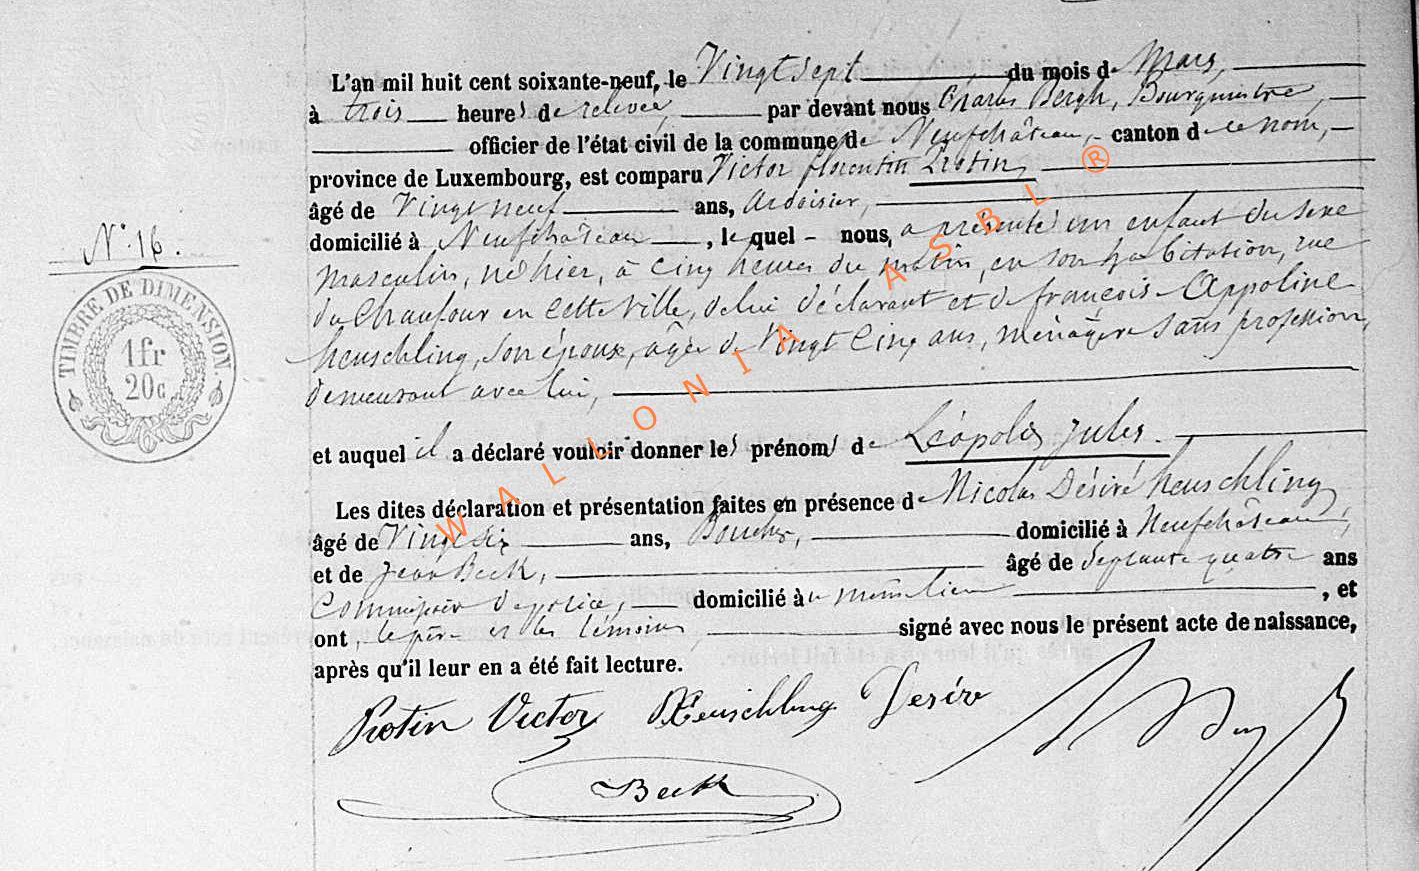 L'an mil huit cent soixante-neuf, le Vingt sept du mois de Mars,
à trois heures de relevée, par devant nous Charles Bergh, Bourgmestre,
officier de l'état civil de la commune de Neufchâteau, canton de ce nom,
province de Luxembourg, est comparu Victor florentin Protin,
âgé de Vingt neuf ans, ardoisier,
domicilié à Neufchâteau, lequel nous, a présenté un enfant du sexe
N° 16.
masculin, né hier, à cinq heures du matin, en son habitation, rue
du Chaufour en cette ville, de lui déclarant et de françoise Appoline
heuschling, son épouse, âgée de Vingt Cinq ans, ménagère sans profession,
demeurant avec lui,
TIMBRE DE DIMENSION
1 fr
20 c
et auquel il a déclaré vouloir donner les prénoms de Léopold Jules.
Les dites déclaration et présentation faites en présence de Nicolas Désiré heuschling
âgé de Vingt six ans, Boucher, domicilié à Neufchâteau,
et de Jean Beck, âgé de Septante quatre ans
Commissaire de police, domicilié à même lieu, et
ont, le père et les témoins, signé avec nous le présent acte de naissance,
après qu'il leur en a été fait lecture.
Protin Victor Heuschling Desire
Beck
WALLONIA ASBL ®